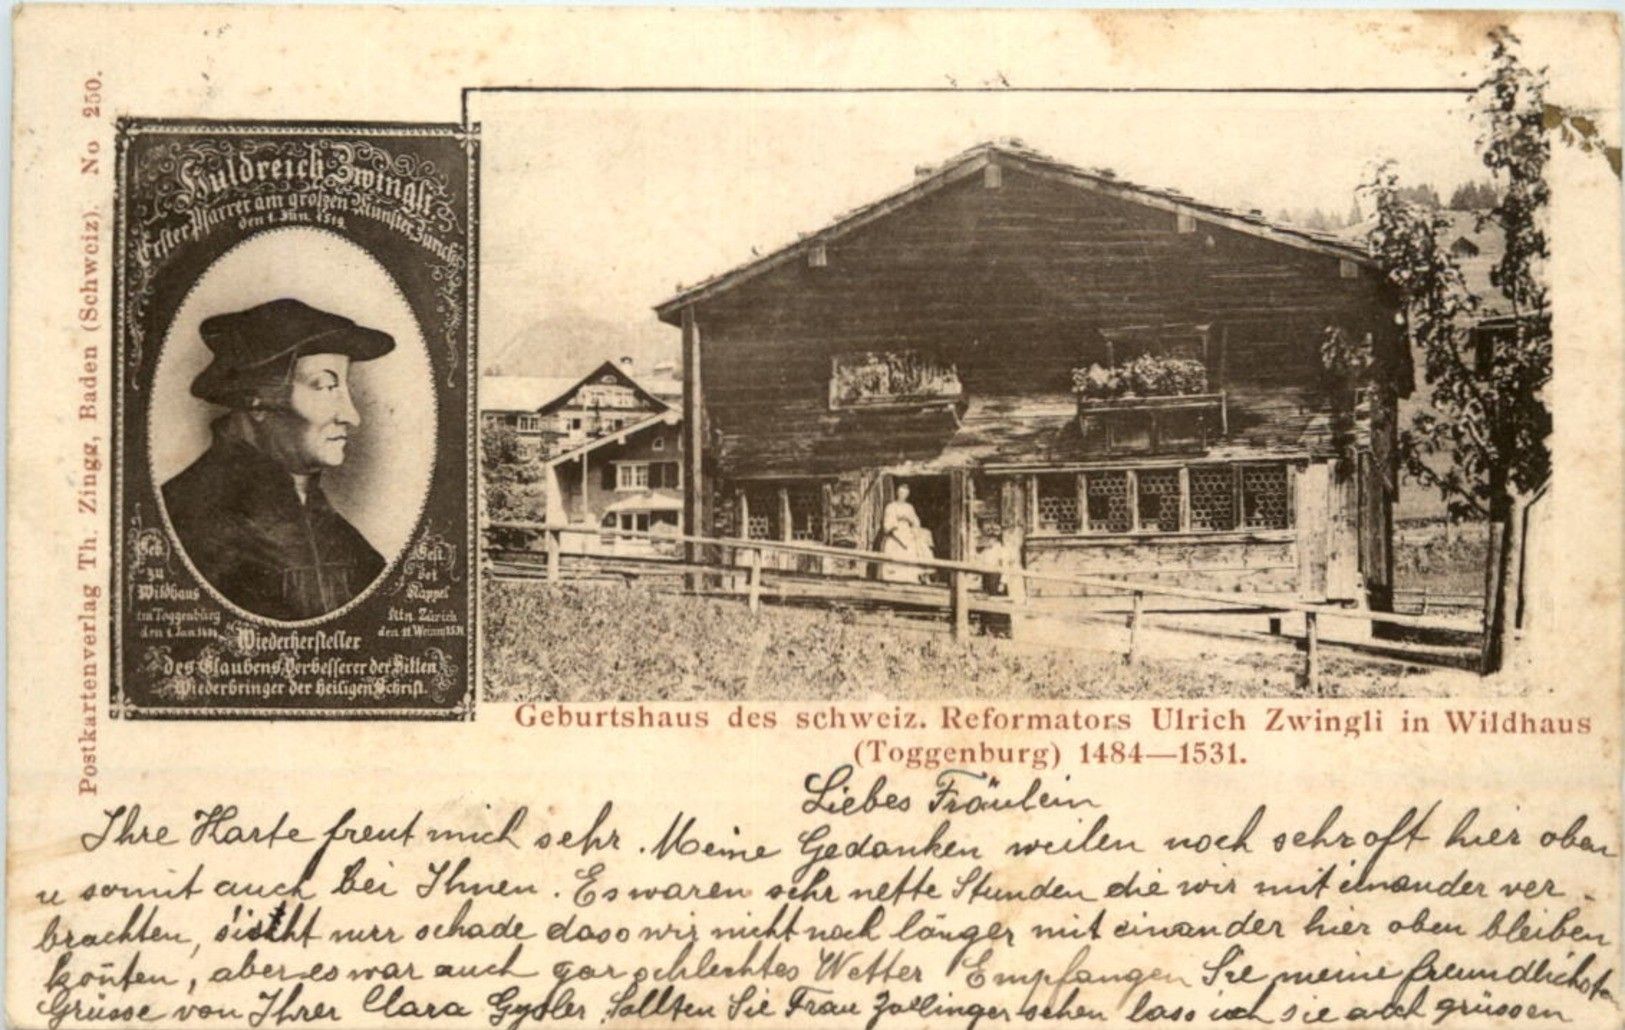 Postkartenverlag Th. Zingg, Baden (Schweiz). No 250.
Huldreich Zwingli
Erster Pfarrer am großen Münster Zürich
den 1. Jan. 1519
Geb.
zu
Wildhaus
im Toggenburg
den 1. Jan. 1484
Gest.
bei
Kappel
Ktn. Zürich
den 11 Weinm 1531
Wiederhersteller
des Glaubens, Verbesserer der Sitten
Wiederbringer der heiligen Schrift.
Geburtshaus des schweiz. Reformators Ulrich Zwingli in Wildhaus
(Toggenburg) 1484—1531.
Liebes Fräulein
Ihre Karte freut mich sehr. Meine Gedanken weilen noch sehr oft hier oben
u somit auch bei Ihnen. Es waren sehr nette Stunden die wir mit einander ver
brachten, nur schade dass wir nicht noch länger mit einander hier oben bleiben
kon̄ten, aber es war auch gar schlechtes Wetter Empfangen Sie meine freundlichsten
Grüsse von Ihrer Clara Gysler. Sollten Sie Frau Zollinger sehen lass ich sie auch grüssen